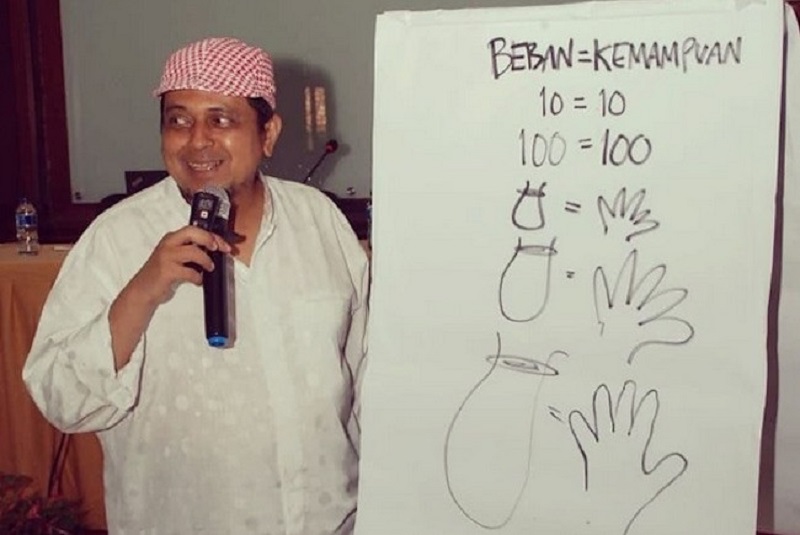 BEBAN=KEMAMPUAN
10 = 10
100 = 100
=
=
=